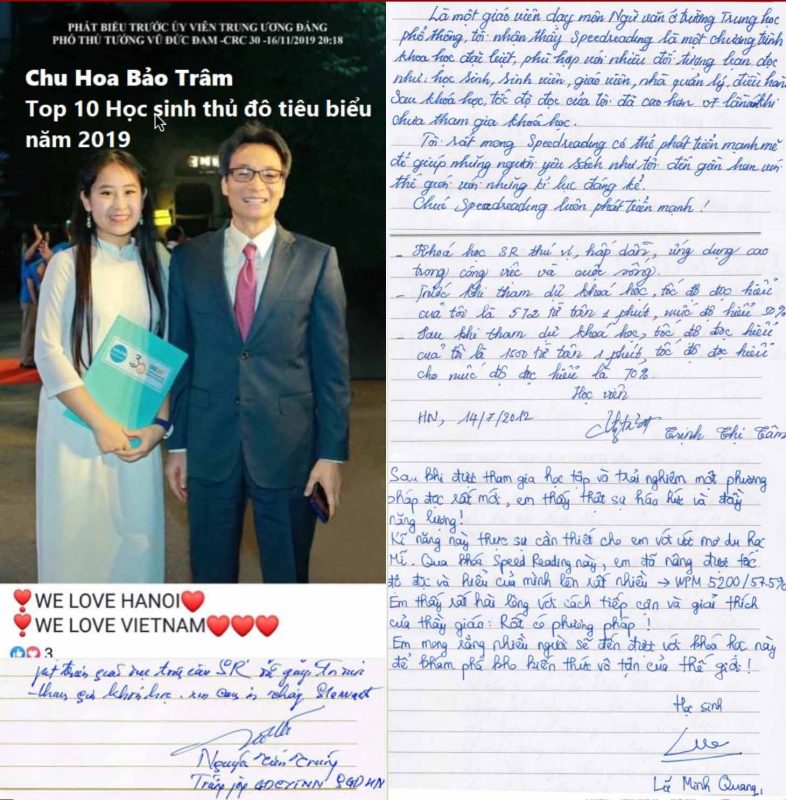 PHÁT BIỂU TRƯỚC ỦY VIÊN TRUNG ƯƠNG ĐẢNG
PHÓ THỦ TƯỚNG VŨ ĐỨC ĐAM -CRC 30 -16/11/2019 20:18
Chu Hoa Bảo Trâm
Top 10 Học sinh thủ đô tiêu biểu
năm 2019
WE LOVE HANOI
WE LOVE VIETNAM
3
Nguyễn
Là một giáo viên dạy môn Ngữ văn ở trường Trung học
phổ thông, tôi nhận thấy Speedreading là một chương trình
khoa học đặc biệt, phù hợp với nhiều đối tượng bạn đọc
như: học sinh, sinh viên, giáo viên, nhà quản lý, điều hàn
Sau khoá học, tốc độ đọc của tôi đã cao hơn 07 lần khi
chưa tham gia khoá học.
Tôi rất mong Speedreading có thể phát triển mạnh mẽ
để giúp những người yêu sách như tôi đến gần hơn với
thế giới với những kỉ lục đáng kể.
Chúc Speedreading luôn phát triển mạnh!
- Khoá học SR thú vị, hấp dẫn, ứng dụng cao
trong công việc và cuộc sống.
- Trước khi tham dự khoá học, tốc độ đọc hiểu
của tôi là 572 từ trên 1 phút, mức độ hiểu 50%
- Sau khi tham dự khoá học, tốc độ đọc hiểu
của tôi là 1500 từ trên 1 phút, tốc độ đọc hiểu
cho mức độ đọc hiểu là 70%.
Học viên
HN, 14/7/2012
Trịnh Thị Tâm
Sau khi được tham gia học tập và trải nghiệm một phương
pháp đọc rất mới, em thấy thật sự háo hức và đầy
năng lượng!
Kĩ năng này thực sự cần thiết cho em với ước mơ du học
Mĩ. Qua khoá Speed Reading này, em đã nâng được tốc
độ đọc và hiểu của mình lên rất nhiều → WPM 5200/57.5%
Em thấy rất hài lòng với cách tiếp cận và giải thích
của thầy giáo: Rất có phương pháp!
Em mong rằng nhiều người sẽ đến được với khoá học này
để khám phá kho kiến thức vô tận của thế giới!
Học sinh
Lã Minh Quang